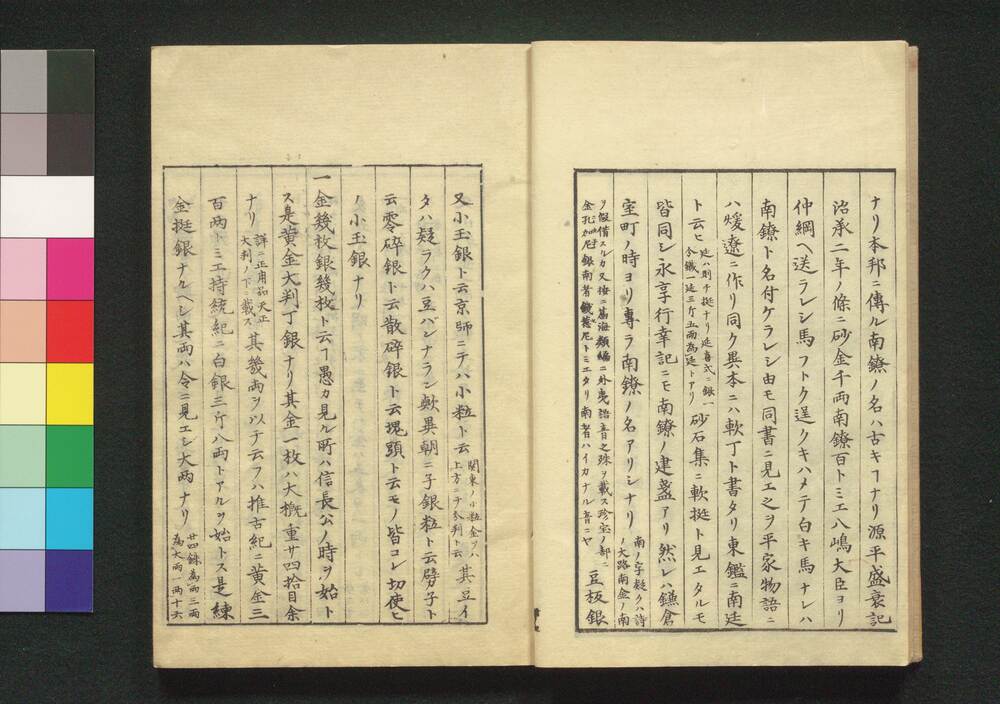 ナリ本邦ニ傳ル南鐐ノ名ハ古キヿナリ源平盛衰記
治承二年ノ條ニ砂金千両南鐐百トミエ八嶋大臣ヨリ
仲綱ヘ送ラレシ馬フトク逞クキハメテ白キ馬ナレハ
南鐐ト名付ケラレシ由モ同書ニ見エ之ヲ平家物語ニ
ハ煖遼ニ作リ同ク異本ニハ軟丁ト書タリ東鑑ニ南廷
ト云ヒ
延ハ則チ挺ナリ延喜式ニ銀一
令鐵一延三斤五両為延トアリ
砂石集ニ軟挺ト見エタルモ
皆同シ永享行幸記ニモ南鐐ノ建盞アリ然レハ鎌倉
室町ノ時ヨリ專ラ南鐐ノ名アリシナリ
南ノ字疑クハ詩
ノ大路南金ノ南
ノ假借スルカ又按ニ蓄海類編ニ外夷語音之殊ヲ載ス珍宝ノ部ニ
金孔加尼銀南者 トミエタリ南者ハイカナル音ニヤ
豆板銀
又小玉銀ト云京師ニテハ小粒ト云
関東ノ小粒金ヲハ
上方ニテ分判ト云
其豆イ
タハ疑ラクハ豆バンナラン歟異朝ニ子銀粒ト云劈子ト
云零碎銀ト云散碎銀ト云塊頭ト云モノ皆コレ切使ヒ
ノ小玉銀ナリ
一金幾枚銀幾枚ト云ヿ愚カ見ル所ハ信長公ノ時ヲ始ト
ス是黄金大判丁銀ナリ其金一枚ハ大概重サ四拾目余
ナリ
詳ニ正用品天正
大判ノ下ニ載ス
其幾両ヲ以テ云フハ推古紀ニ黄金三
百両トミエ持統紀ニ白銀三斤八両トアルヲ始トス是練
金挺銀ナルヘシ其両ハ令ニ見エシ大両ナリ
廿四銖為両三両
為大両一両十六